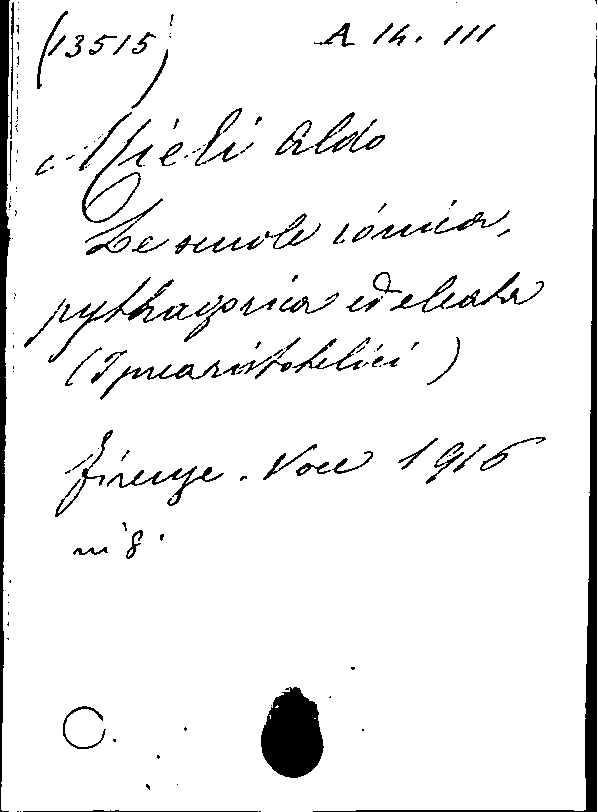 (13515) A 14. III
Mieli Aldo
Le scuole ionica,
pythagorica ed eleata
(I prearistotelici)
Firenze. Voce 1916
in 8.